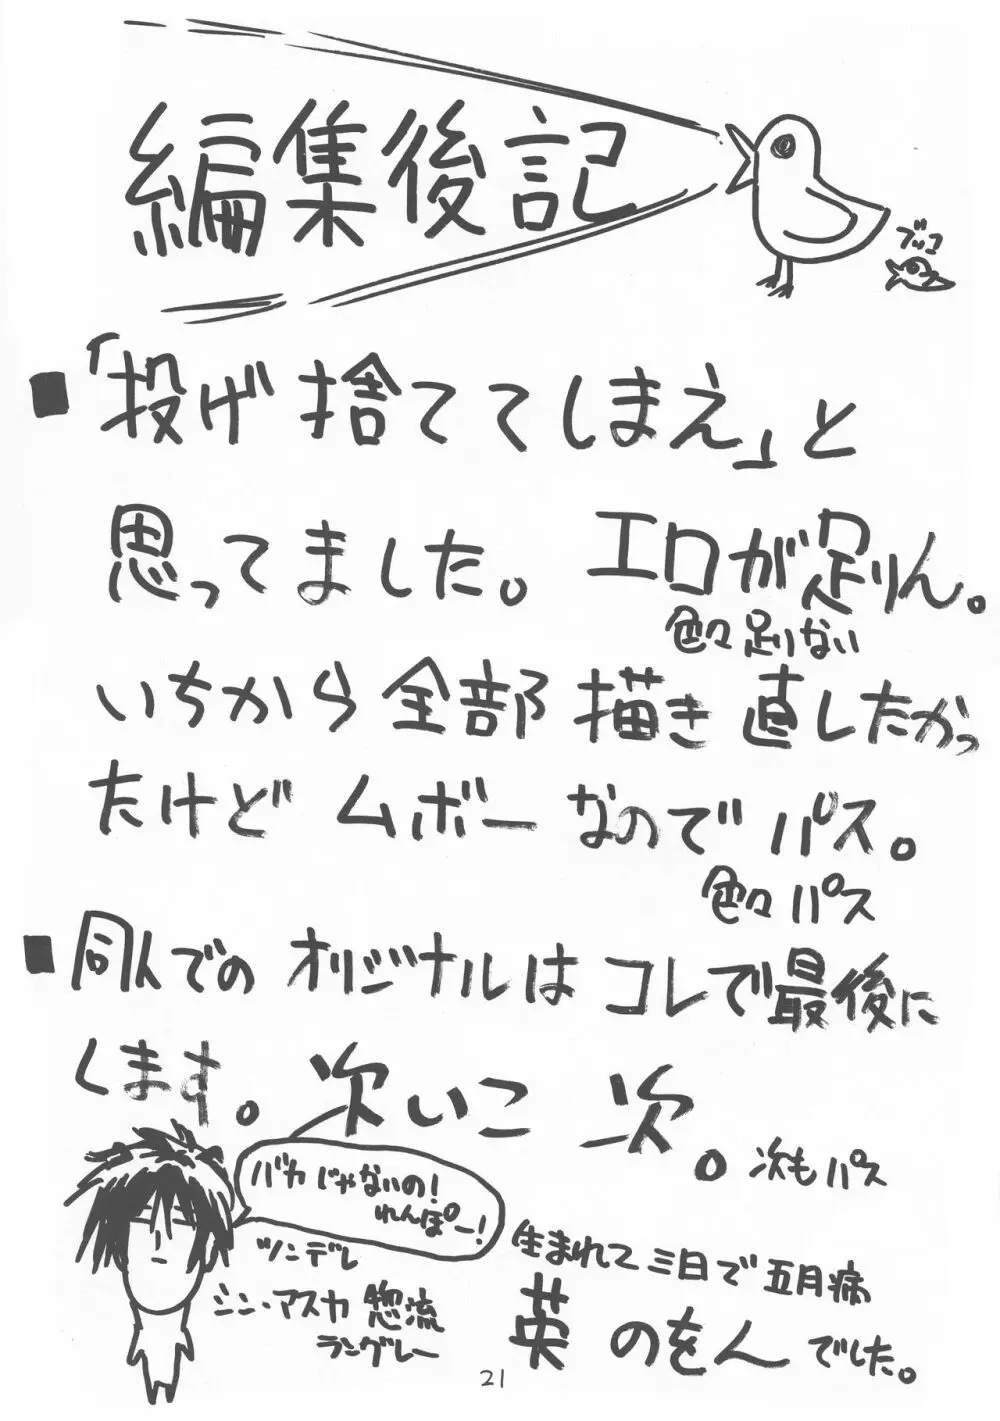 編集後記
ブッコ
■「投げ捨ててしまえ」と
思ってました。 エロが足りん。
色々足りない
いちから全部描き直したかっ
たけど ムボーなので パス。
色々パス
■同人での オリジナルは コレで最後に
します。 次いこ 次。
次もパス
バカじゃないの!
れんぽー!
ツンデレ
シン・アスカ 惣流
ラングレー
生まれて三日で五月病
英のをんでした。
21